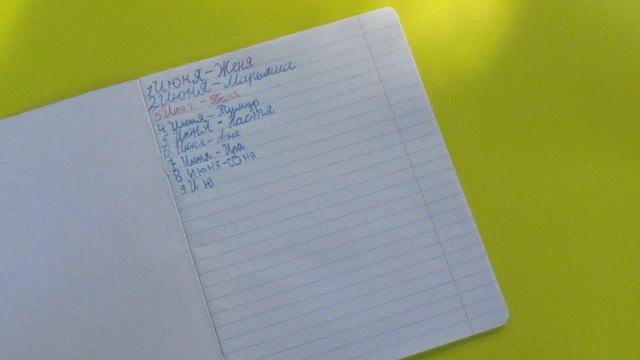 1 Июня - Женя
2 Июня - Марьяша
3 Июня -
4 Июня - Тимур
5 Июня - Настя
6 Июня - Аня
7 Июня - Ира
8 Июня - Соня
9 Ию